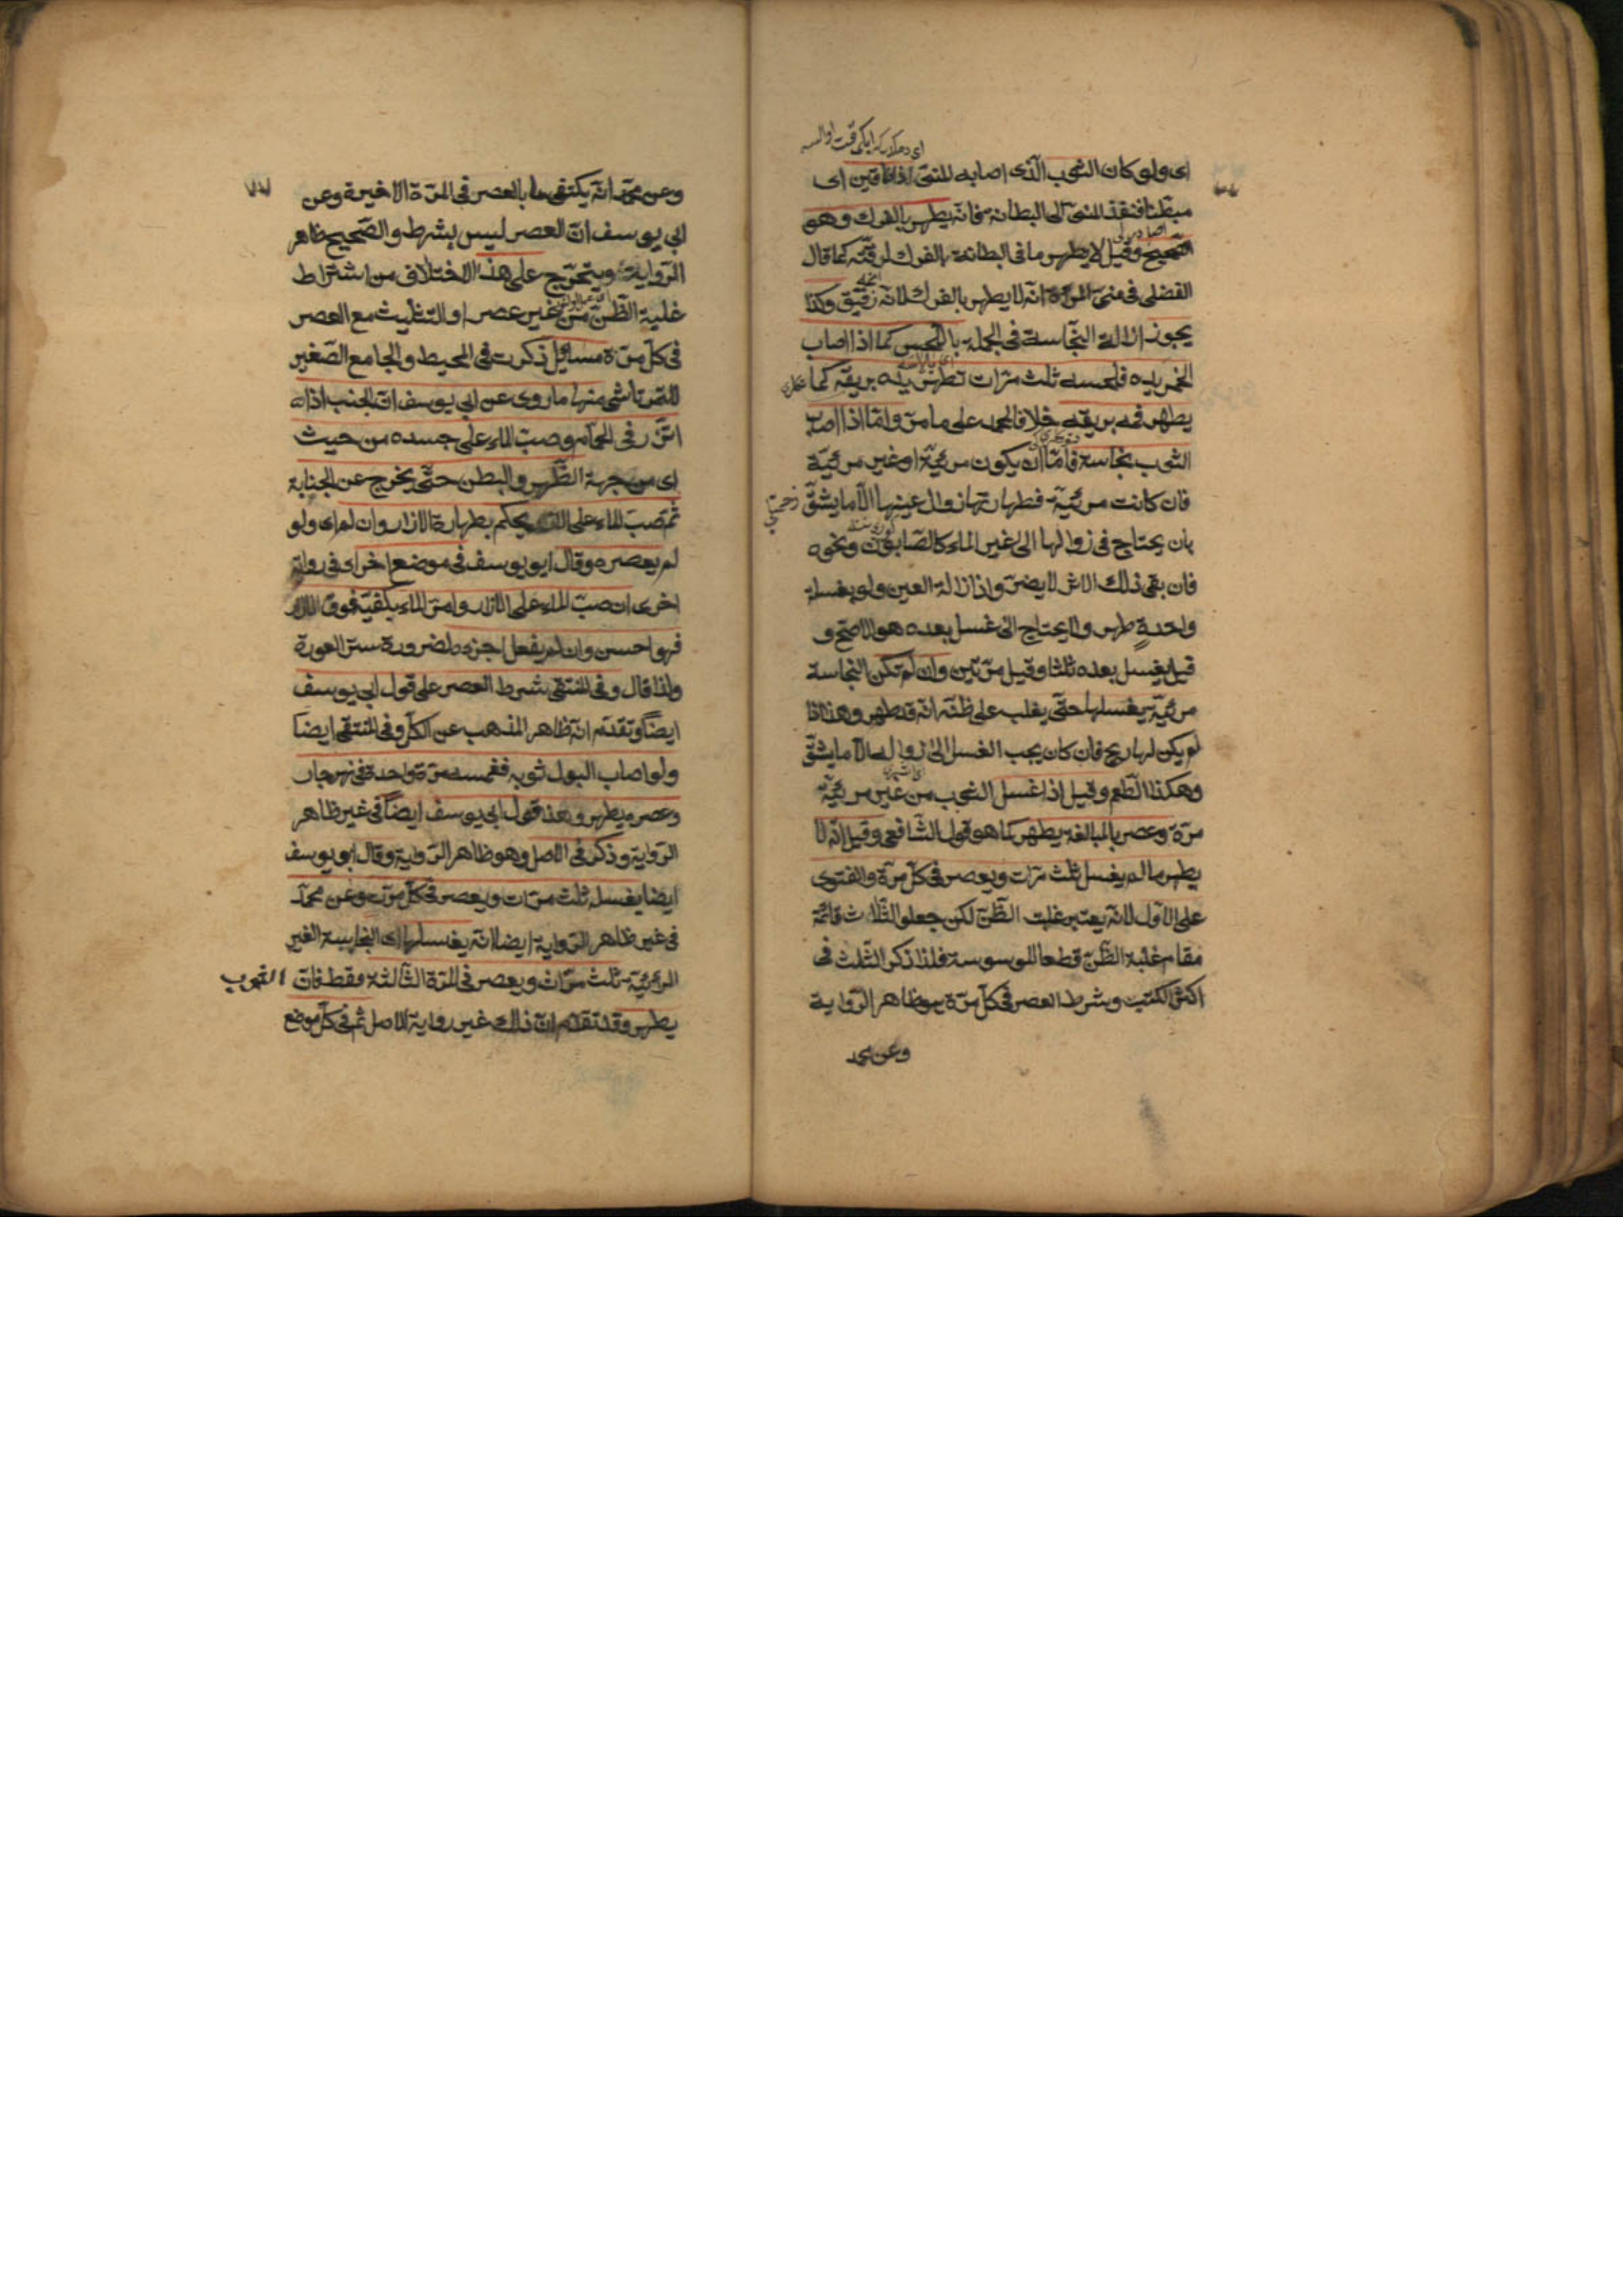 اى ولو كان الثوب الّذى اصابه المنىّ اذا طاقين اى
مبطّنا فنفذ المنىّ الى البطانة فانّه يطهر بالفرك وهو
الصّحيح وقيل لا يطهر ما فى البطانة بالفرك لرقّته كما قال
الفضلى فى منىّ المرأة انّه لا يطهر بالفرك لانّه رقيق وكذا
يجوز ازالة النّجاسة فى الجملة باللّحس كما اذا اصاب
الخمر يده فلحسه ثلث مرّات تطهر يده بريقه كما
يطهر فمه بريقه خلافا لمحمد على ما مرّ وامّا اذا اصاب
الثوب نجاسة فامّا ان يكون مرئيّة او غير مرئيّة
فان كانت مرئيّة فطهارتها زوال عينها الّا ما يشقّ
بان يحتاج فى زوالها الى غير الماء كالصّابون ونحوه
فان بقى ذلك الاثر لا يضرّ واذا زالة العين ولو بغسلة
واحدة طهر ولا يحتاج الى غسل بعده هو الاصحّ و
قيل يغسل بعده ثلثا وقيل مرّتين وان لم تكن النجاسة
مرئيّة يغسلها حتّى يغلب على ظنّه انّه قد طهر وهذا اذا
لم يكن لها ريح فان كان يجب الغسل الى زواله الّا ما يشقّ
وهكذا الطّعم وقيل اذا غسل الثوب من غير مرئيّة
مرّة وعصر بالمبالغة يطهر كما هو قول الشّافعى وقيل انّه لا
يطهر ما لم يغسل ثلث مرّات ويعصر فى كلّ مرّة والفتوى
على الاوّل لانّه يعتبر غلبت الظّنّ لكن جعلو الثّلاث قائمة
مقام غلبة الظّنّ قطعا للوسوسة فلذا ذكر الثّلث فى
اكثر الكتب وشرط العصر فى كلّ مرّة هو ظاهر الرّواية
وعن محمد
وعن محمّد انّه يكتفى بالعصر فى المرّة الاخيرة وعن
ابى يوسف انّ العصر ليس بشرط والصّحيح ظاهر
الرّواية ويتخرّج على هذا الاختلاف من اشتراط
غلبة الظّنّ من غير عصر او التثليث مع العصر
فى كلّ مرّة مسائل ذكرت فى المحيط والجامع الصّغير
للتمرتاشى منها ما روى عن ابى يوسف انّ الجنب اذا
اتّزر فى الحمّام وصبّ الماء على جسده من حيث
اى من جهة الظّهر والبطن حتّى يخرج عن الجنابة
ثمّ صبّ الماء على الازار يحكم بطهارة الازار وان لم اى ولو
لم يعصره وقال ابو يوسف فى موضع اخر اى فى رواية
اخرى ان صبّ الماء على الازار وامرّ الماء بكفّيه فوق الازار
فهو احسن وان لم يفعل اجزءه لضرورة ستر العورة
ولذا قال وفى المنتقى شرط العصر على قول ابى يوسف
ايضاً وتقدّم انّه ظاهر المذهب عن الكلّ وفى المنتقى ايضا
ولو اصاب البول ثوبه فغمسه مرّة واحدة فى نهر جار
وعصره يطهر وهذا قول ابى يوسف ايضاً فى غير ظاهر
الرّواية وذكر فى الاصل وهو ظاهر الرّواية وقال ابو يوسف
ايضا يغسله ثلث مرّات ويعصر فى كلّ مرّة وعن محمّد
فى غير ظاهر الرّواية ايضا انّه يغسلها اى النجاسة الغير
المرئيّة ثلث مرّات ويعصر فى المرّة الثّالثة فقط فانّ الثوب
يطهر وقد تقدّم انّ ذلك غير رواية الاصل ثمّ فى كلّ موضع